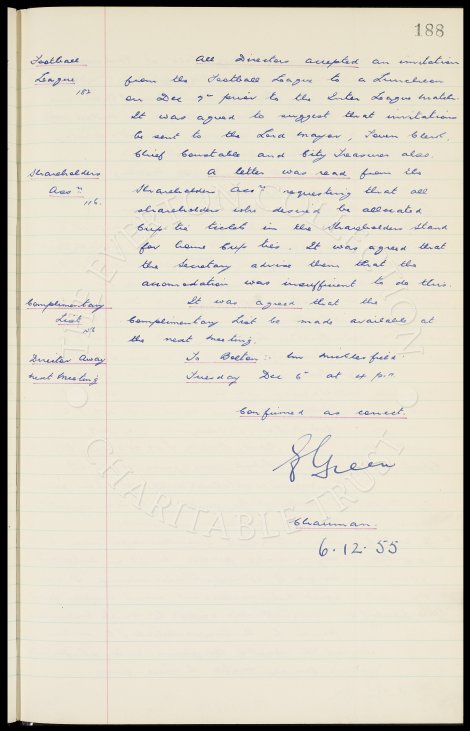 188
Football All Directors accepted an invitation
League from the Football League to a Luncheon
182 on Dec 7th prior to the Inter League match.
It was agreed to suggest that invitations
be sent to the Lord Mayor, Town Clerk,
Chief Constable and City Treasurer also.
Shareholders A letter was read from the
Assn Shareholders Assn requesting that all
116. shareholders who desired be allocated
Cup tie tickets in the Shareholders Stand
for home Cup ties. It was agreed that
the Secretary advise them that the
accomodation was insufficient to do this.
Complimentary It was agreed that the
List Complimentary List be made available at
the next meeting.
Director Away To Bolton:- Mr Micklesfield.
Next Meeting Tuesday Dec 6th at 4 p.m.
Confirmed as correct.
Green
Chairman.
6.12.55
THE EVERTON COLLECTION
CHARITABLE TRUST